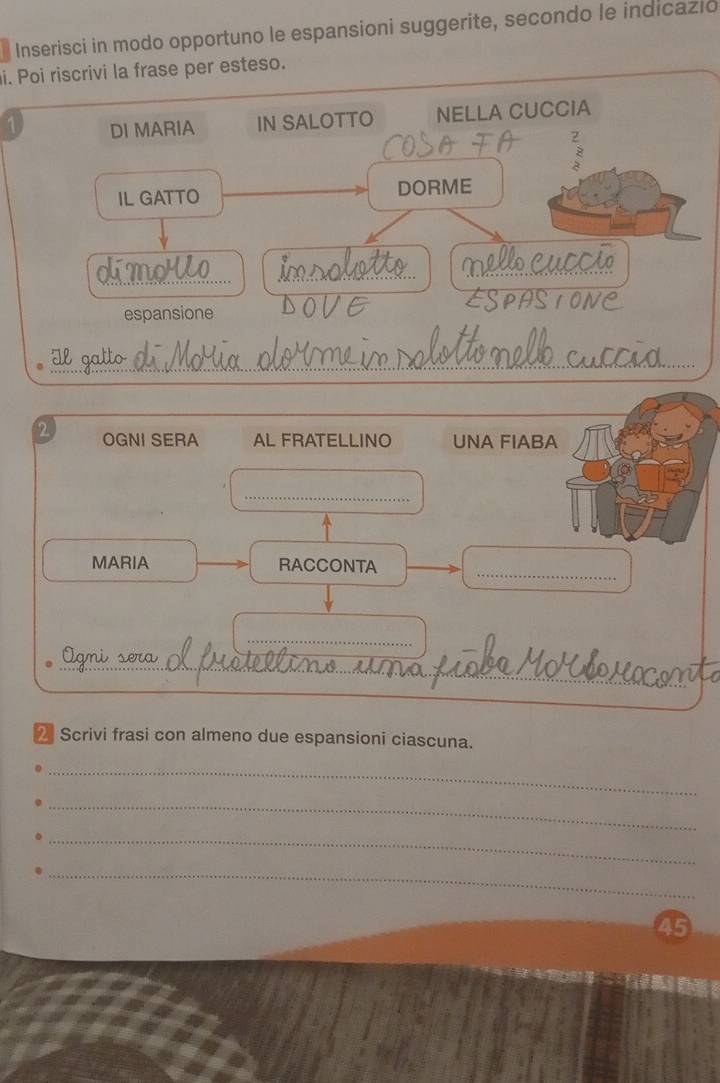 1 Inserisci in modo opportuno le espansioni suggerite, secondo le indicazio
ni. Poi riscrivi la frase per esteso.
1 DI MARIA IN SALOTTO NELLA CUCCIA
COSA FA
z z z
IL GATTO DORME
di mario in salotto nella cuccia
espansione DOVE ESPASIONE
Il gatto di Maria dorme in salotto nella cuccia
2 OGNI SERA AL FRATELLINO UNA FIABA
MARIA RACCONTA
Ogni sera al fratellino una fiaba Maria raconta
2 Scrivi frasi con almeno due espansioni ciascuna.
45